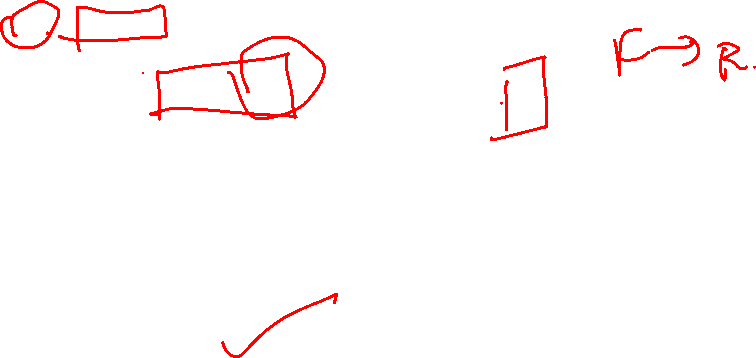 F → R.